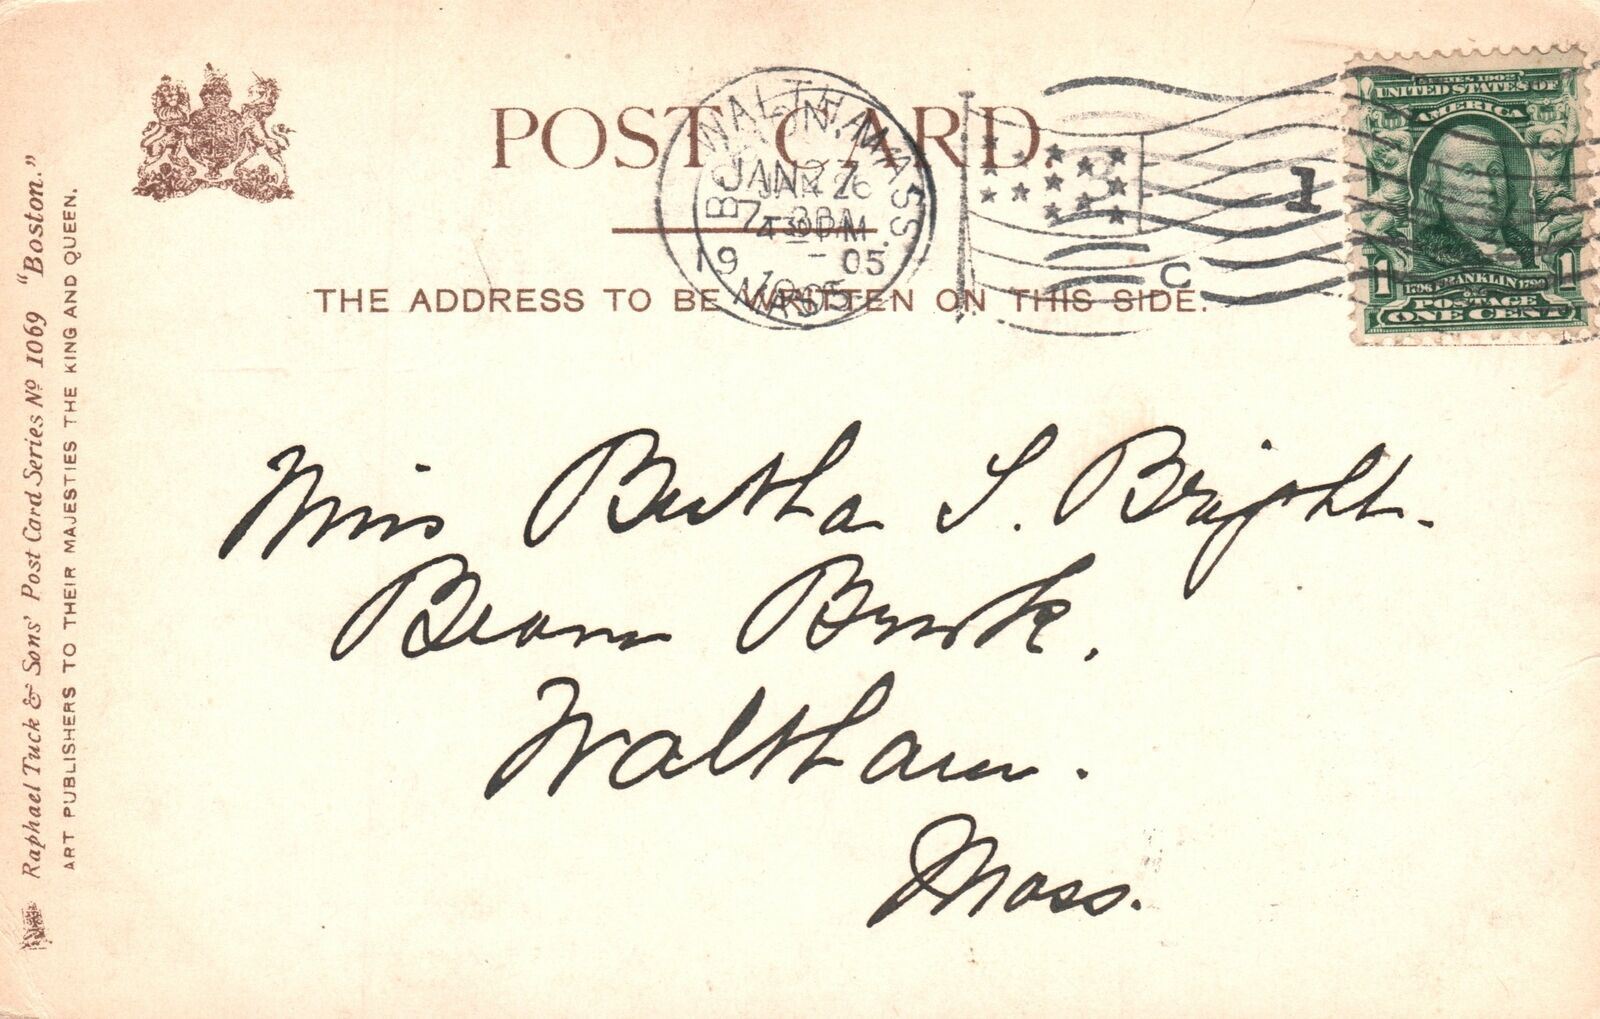 POST CARD.
THE ADDRESS TO BE WRITTEN ON THIS SIDE.
Raphael Tuck & Sons' Post Card Series Nº 1069 "Boston."
ART PUBLISHERS TO THEIR MAJESTIES THE KING AND QUEEN.
WALTHAM, MASS.
JAN 27
7
1905
BOSTON,
JAN 26
4 30 PM
1905
MASS.
1
C
SERIES 1902
UNITED STATES OF
AMERICA
1706 FRANKLIN 1790
1 1
POSTAGE
ONE CENT
Miss Bertha S. Bright.
Beaver Brook.
Waltham.
Mass.